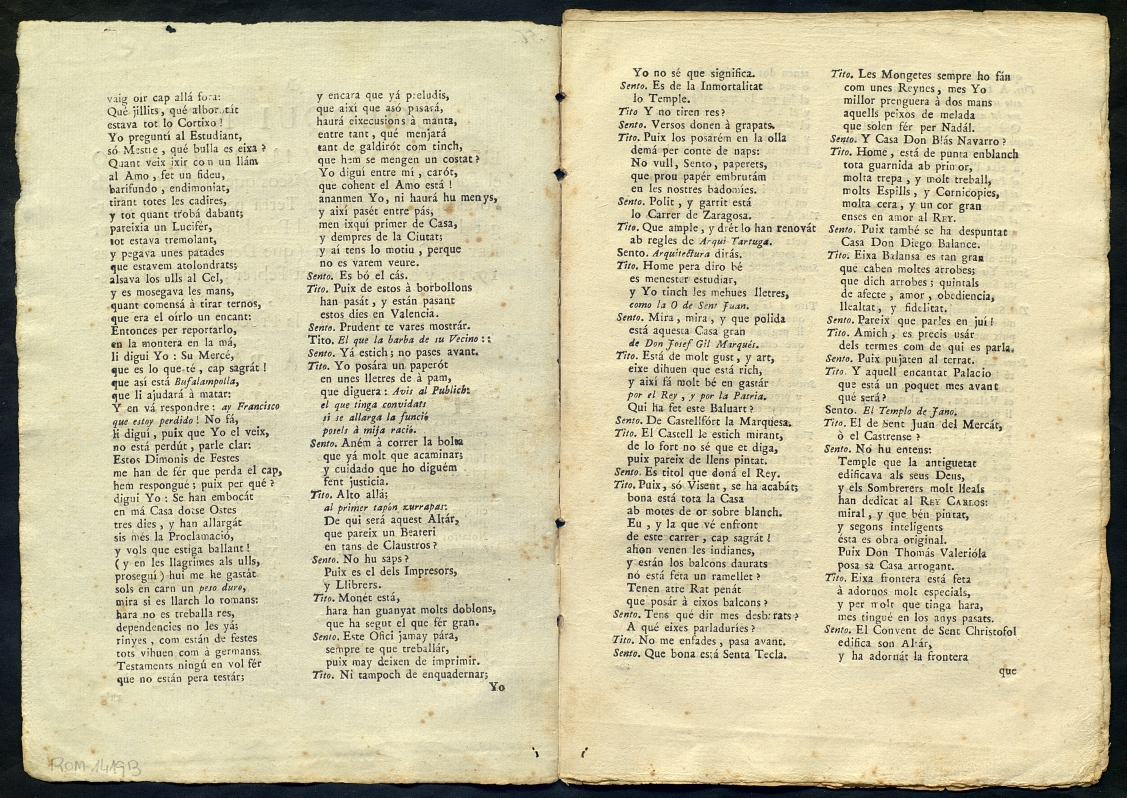 vaig oir cap allá fora:
Qué jillits, qué alborotát
estava tot lo Cortixo!
Yo preguntí al Estudiant,
só Mestre, qué bulla es eixa?
Quant veix ixir com un llám
al Amo, fet un fideu,
barifundo, endimoniat,
tirant totes les cadires,
y tot quant trobá dabant;
pareixia un Lucifér,
tot estava tremolant,
y pegava unes patades
que estavem atolondrats;
alsava los ulls al Cel,
y es mosegava les mans,
quant comensá à tirar ternos,
que era el oírlo un encant:
Entonces per reportarlo,
en la montera en la má,
li digui Yo: Su Mercé,
que es lo que té, cap sagrát!
que así está Bufalampolla,
que li ajudará à matar:
Y en vá respondre: ay Francisco
que estoy perdido! No fá,
li digui, puix que Yo el veix,
no está perdút, parle clar:
Estos Dimonis de Festes
me han de fér que perda el cap,
hem respongué; puix per qué?
digui Yo: Se han embocát
en má Casa dotse Ostes
tres dies, y han allargát
sis més la Proclamació,
y vols que estiga ballant!
(y en les llagrimes als ulls,
prosegui) hui me he gastát
sols en carn un peso duro,
mira si es llarch lo romans:
hara no es treballa res,
dependencies no les yá;
rinyes, com están de festes
tots vihuen com à germans;
Testaments ningú en vol fér
que no están pera testár;
y encara que yá preludis,
que aixi que asó pasará,
haurá eixecusions à manta,
entre tant, qué menjará
tant de galdirót com tinch,
que hem se mengen un costat?
Yo digui entre mi, carót,
que cohent el Amo está!
ananmen Yo, ni haurá hu menys,
y aixi pasét entre pás,
men ixqui primer de Casa,
y dempres de la Ciutat;
y aí tens lo motiu, perque
no es varem veure.
Sento. Es bó el cás.
Tito. Puix de estos à borbollons
han pasát, y están pasant
estos dies en Valencia.
Sento. Prudent te vares mostrár.
Tito. El que la barba de su Vecino::
Sento. Yá estich; no pases avant.
Tito. Yo posára un paperót
en unes lletres de à pam,
que diguera: Avis al Publich:
el que tinga convidats
si se allarga la funció
posels à mija ració.
Sento. Aném à correr la bolta
que yá molt que acaminar;
y cuidado que ho diguém
fent justicia.
Tito. Alto allá;
al primer tapón zurrapas:
De qui será aquest Altár,
que pareix un Beateri
en tans de Claustros?
Sento. No hu saps?
Puix es el dels Impresors,
y Llibrers.
Tito. Monét está,
hara han guanyat molts doblons,
que ha segut el que fér gran.
Sento. Este Ofici jamay pára,
sempre te que treballár,
puix may deixen de imprimir.
Tito. Ni tampoch de enquadernar;
Yo
Yo no sé que significa.
Sento. Es de la Inmortalitat
lo Temple.
Tito Y no tiren res?
Sento. Versos donen à grapats.
Tito. Puix los posarém en la olla
demá per conte de naps:
No vull, Sento, paperets,
que prou papér embrutám
en les nostres badomies.
Sento. Polit, y garrit está
lo Carrer de Zaragosa.
Tito. Que ample, y drét lo han renovát
ab regles de Arqui-Tartuga.
Sento. Arquitectura dirás.
Tito. Home pera diro bé
es menester estudiar,
y Yo tinch les mehues lletres,
como la O de Sent Juan.
Sento. Mira, mira, y que polida
está aquesta Casa gran
de Don Josef Gil Marqués.
Tito. Está de molt gust, y art,
eixe dihuen que está rich,
y aixi fá molt bé en gastár
por el Rey, y por la Patria.
Qui ha fet este Baluart?
Sento. De Castellfórt la Marquesa.
Tito. El Castell le estich mirant,
de lo fort no sé que et diga,
puix pareix de llens pintat.
Sento. Es titol que doná el Rey.
Tito. Puix, só Visent, se ha acabát;
bona está tota la Casa
ab motes de or sobre blanch.
Eu, y la que vé enfront
de este carrer, cap sagrát!
ahon venen les indianes,
y están los balcons daurats
nó está feta un ramellet?
Tenen atre Rat penát
que posár à eixos balcons?
Sento. Tens qué dir mes desbarats?
A qué eixes parladuríes?
Tito. No me enfades, pasa avant.
Sento. Que bona está Senta Tecla.
Tito. Les Mongetes sempre ho fán
com unes Reynes, mes Yo
millor prenguera à dos mans
aquells peixos de melada
que solen fér per Nadál.
Sento. Y Casa Don Blás Navarro?
Tito. Home, está de punta enblanch
tota guarnida ab primor,
molta trepa, y molt treball,
molts Espills, y Cornicopies,
molta cera, y un cor gran
enses en amor al REY.
Sento. Puix també se ha despuntat
Casa Don Diego Balance.
Tito. Eixa Balansa es tan gran
que caben moltes arrobes;
que dich arrobes; quintals
de afecte, amor, obediencia,
llealtat, y fidelitat.
Sento. Pareix que parles en juí!
Tito. Amich, es precis usár
dels termes com de qui es parla.
Sento. Puix pujaten al terrat.
Tito. Y aquell encantat Palacio
que está un poquet mes avant
qué será?
Sento. El Templo de Jano.
Tito. El de Sent Juan del Mercát,
ò el Castrense?
Sento. No hu entens:
Temple que la antiguetat
edificava als seus Deus,
y els Sombrerers molt lleals
han dedicat al REY CARLOS:
miral, y que bén pintat,
y segons inteligents
ésta es obra original.
Puix Don Thomás Valerióla
posa sa Casa arrogant.
Tito. Eixa frontera está feta
à adornos molt especials,
y per molt que tinga hara,
mes tingué en los anys pasats.
Sento. El Convent de Sent Christofol
edifica son Altár,
y ha adornát la frontera
que
ROM-1419B